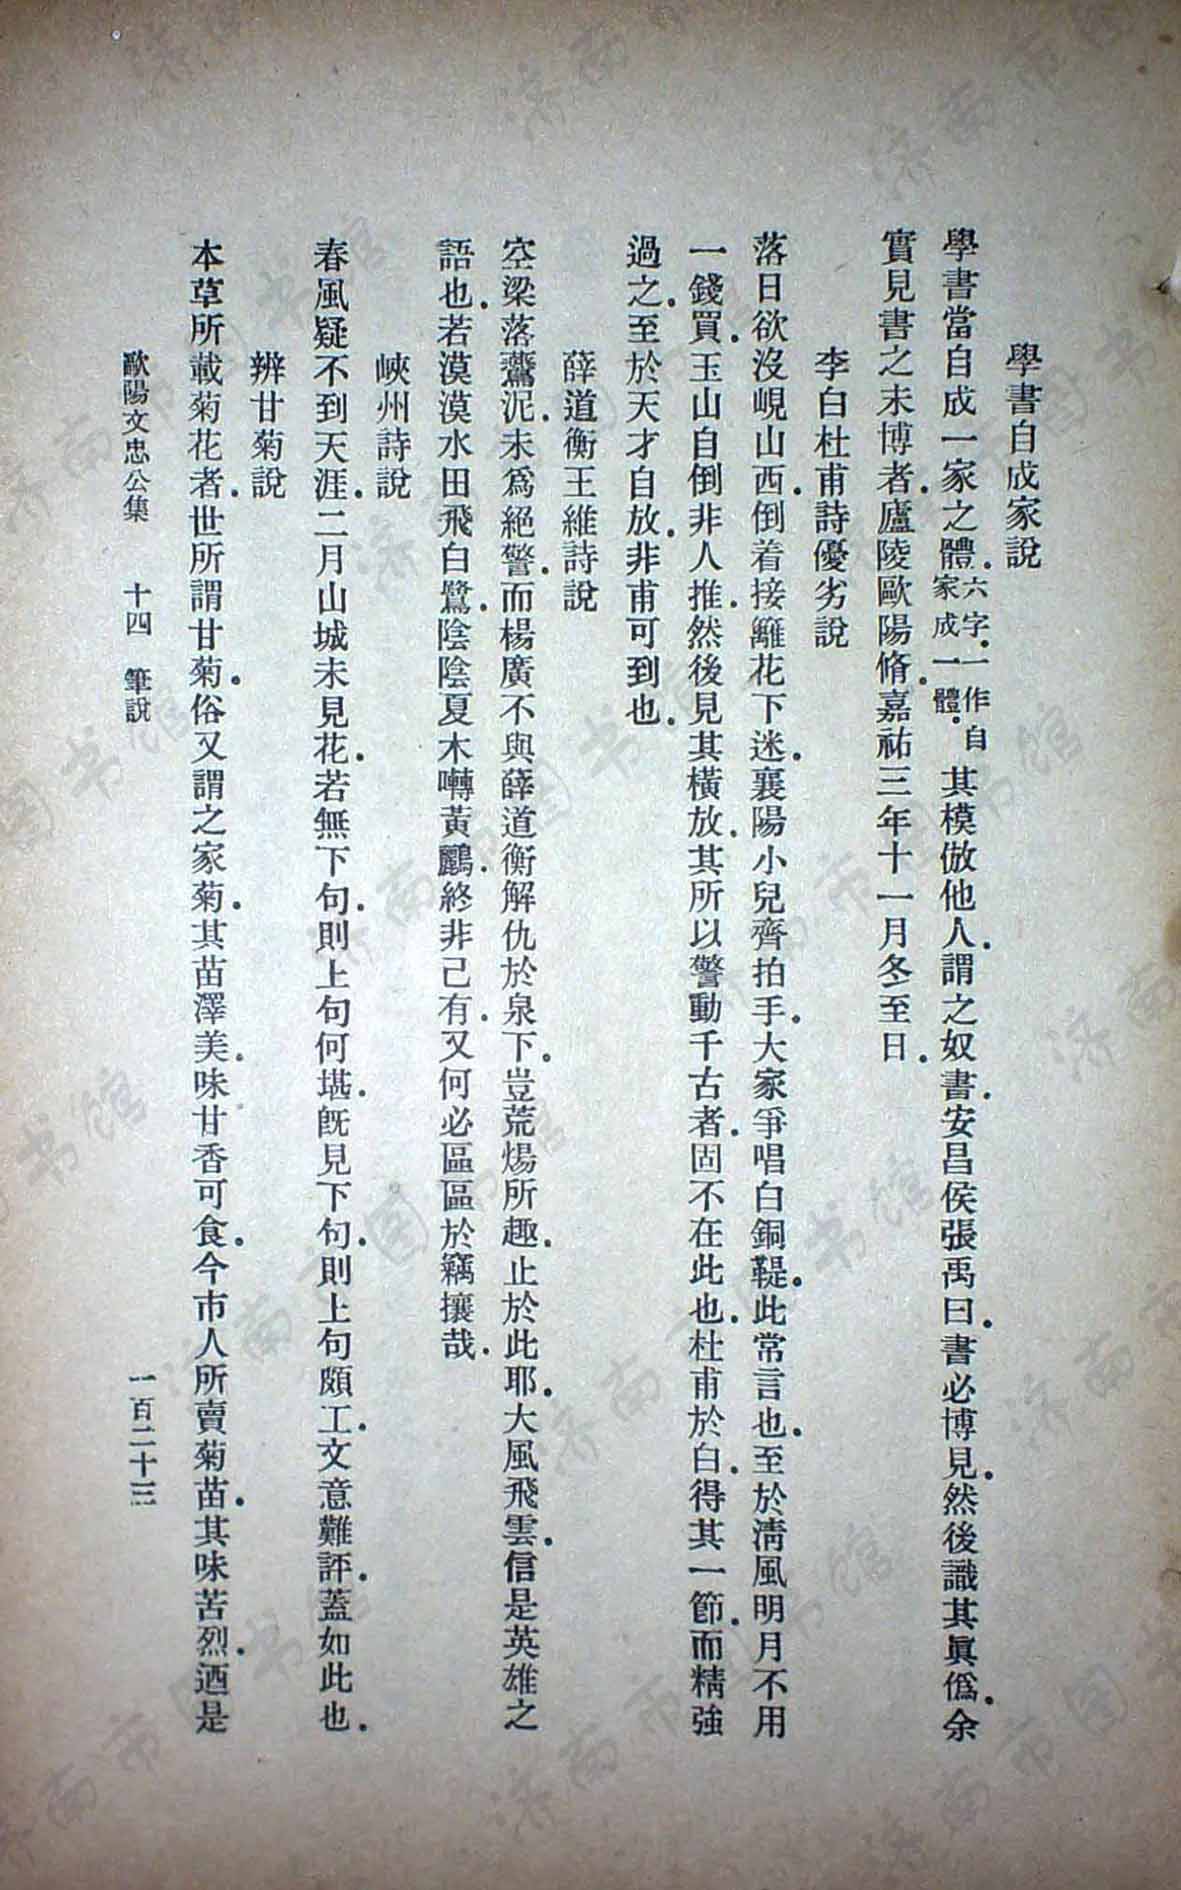 學書自成家說
學書當自成一家之體．六字．一作自家成一體．其模倣他人．謂之奴書．安昌侯張禹曰．書必博見．然後識其眞僞．余
實見書之未博者．廬陵歐陽脩．嘉祐三年十一月冬至日．
李白杜甫詩優劣說
落日欲沒峴山西．倒着接䍦花下迷．襄陽小兒齊拍手．大家爭唱白銅鞮．此常言也．至於淸風明月不用
一錢買．玉山自倒非人推．然後見其橫放．其所以警動千古者．固不在此也．杜甫於白．得其一節．而精強
過之．至於天才自放．非甫可到也．
薛道衡王維詩說
空梁落鷰泥．未爲絕警．而楊廣不與薛道衡解仇於泉下．豈荒煬所趣．止於此耶．大風飛雲．信是英雄之
語也．若漠漠水田飛白鷺．陰陰夏木囀黃鸝．終非己有．又何必區區於竊攘哉．
峽州詩說
春風疑不到天涯．二月山城未見花．若無下句．則上句何堪．旣見下句．則上句頗工．文意難評．蓋如此也．
辨甘菊說
本草所載菊花者．世所謂甘菊．俗又謂之家菊．其苗澤美．味甘香可食．今市人所賣菊苗．其味苦烈．迺是
歐陽文忠公集 十四 筆說 一百二十三
济南市图书馆